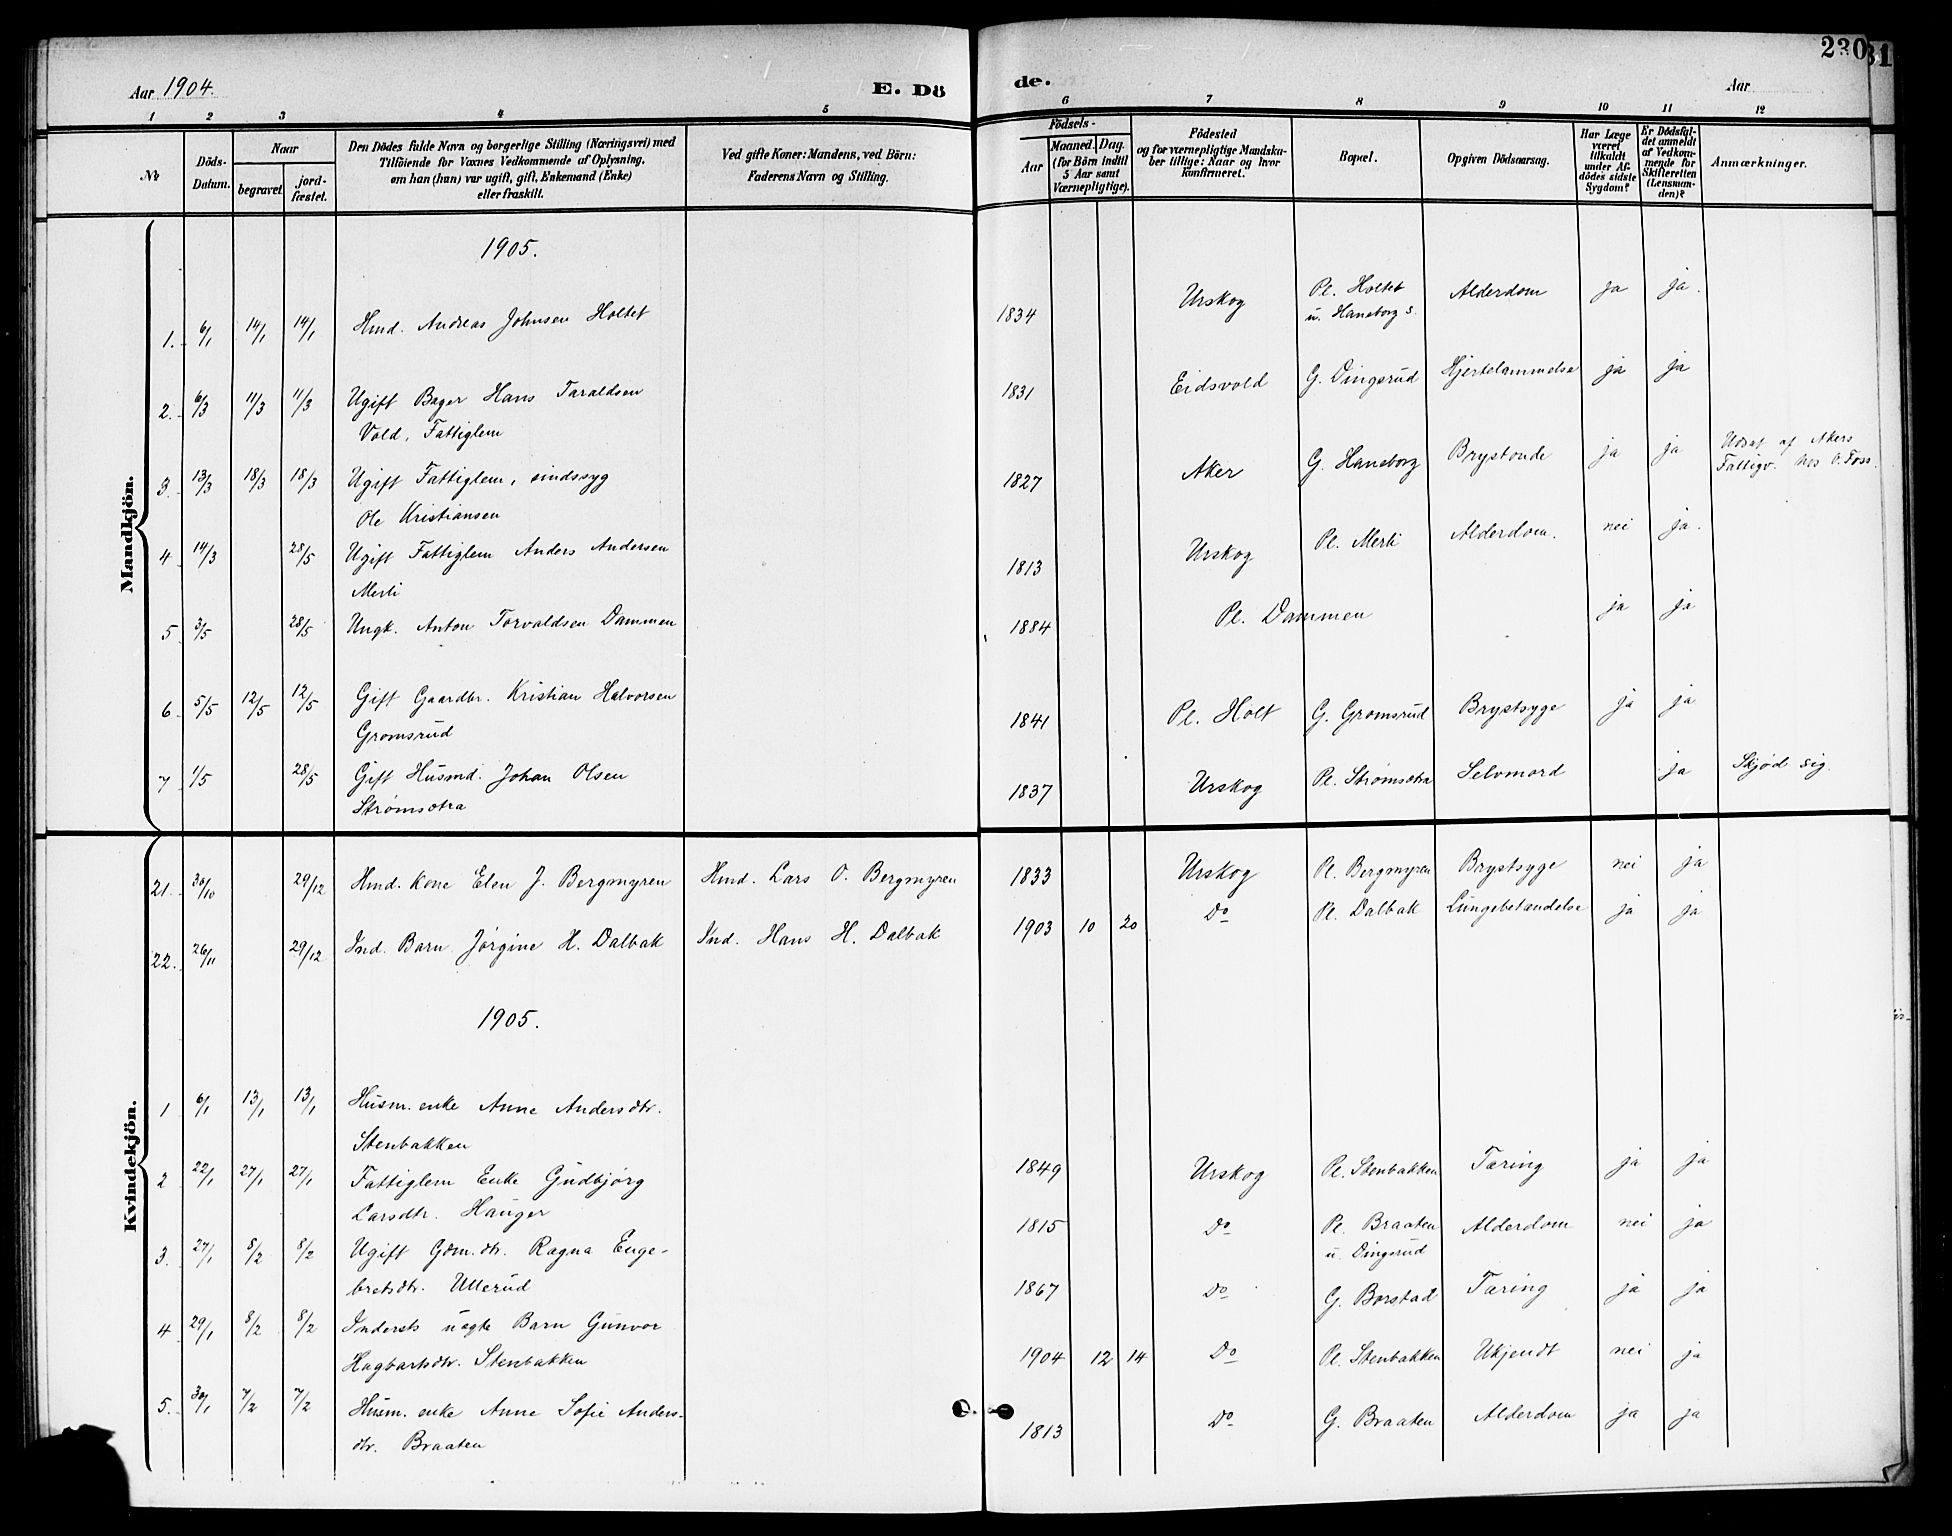 230
31
Aar 1904.
E. Dö
de.
Aar
1 2 3 4 5 6 7 8 9 10 11 12
No
Döds-
Datum.
Naar
begravet
jord-
fæstet.
Den Dödes fulde Navn og borgerlige Stilling (Næringsvei) med
Tilföiende for Voxnes Vedkommende af Oplysning.
om han (hun) var ugift, gift, Enkemand (Enke)
eller fraskilt.
Ved gifte Koner: Mandens, ved Börn:
Faderens Navn og Stilling.
Födsels-
Aar
Maaned. Dag.
(for Börn indtil
5 Aar samt
Værnepligtige).
Födested
og for værnepligtige Mandska-
ber tillige: Naar og hvor
konfirmeret.
Bopæl.
Opgiven Dödsaarsag.
Har Læge
været
tilkaldt
under Af-
dödes sidste
Sygdom?
Er Dödsfal-
det anmeldt
af Vedkom-
mende for
Skifteretten
(Lensman-
den)?
Anmærkninger.
Mandkjön.
1905.
1. 6/1 14/1 14/1 Hmd. Andreas Johnsen Holtet 1834 Urskog Pl. Holtet Alderdom ja ja.
u. Haneborg s.
2. 6/3 11/3 11/3 Ugift Bager Hans Taraldsen 1831 Eidsvold G. Dingsrud Hjertelammelse ja ja
Vold, Fattiglem
3. 13/3 18/3 18/3 Ugift Fattiglem, sindssyg 1827 Aker G. Haneborg Brystonde ja ja Udsat af Akers
Ole Kristiansen Fattigv. hos O. Foss.
4 14/3 28/5 Ugift Fattiglem Anders Andersen 1813 Urskog Pl. Merli Alderdom. nei ja.
Merli
5 3/5 28/5 Ungk. Anton Torvaldsen Dammen 1884 Pl. Dammen ja ja
6 5/5 12/5 12/5 Gift Gaardbr. Kristian Halvorsen 1841 Pl. Holt G. Gromsrud Brystsyge ja ja
Gromsrud
7 1/5 28/5 Gift Husmd. Johan Olsen 1837 Urskog Pl. Strømsætra Selvmord ja Skjød sig.
Strømsætra
Kvindekjön.
21. 30/10 29/12 Hmd. Kone Elen J. Bergmyren Hmd. Lars O. Bergmyren 1833 Urskog Pl. Bergmyren Brystsyge nei ja
22. 26/11 29/12 Ind. Barn Jørgine H. Dalbak Ind. Hans H. Dalbak 1903 10 20 Do Pl. Dalbak Lungebetændelse ja ja
1905.
1 6/1 13/1 13/1 Husm. enke Anne Andersdtr.
Stenbakken 1849 Urskog Pl. Stenbakken Tæring ja ja
2 22/1 27/1 27/1 Fattiglem Enke Gudbjørg
Larsdtr. Hauger 1815 Do Pl. Braaten Alderdom nei ja
u. Dingsrud
3. 27/1 8/2 8/2 Ugift Gdm.dtr. Ragna Enge-
bretsdtr. Ullerud 1867 Do G. Borstad Tæring ja ja
4 29/1 8/2 8/2 Indersts uægte Barn Gunvor
Hagbartsdtr. Stenbakken 1904 12 14 Do Pl. Stenbakken Ukjendt nei ja
5. 30/1 7/2 7/2 Husm. enke Anne Sofie Anders-
dtr. Braaten 1813 Do G. Braaten Alderdom ja ja